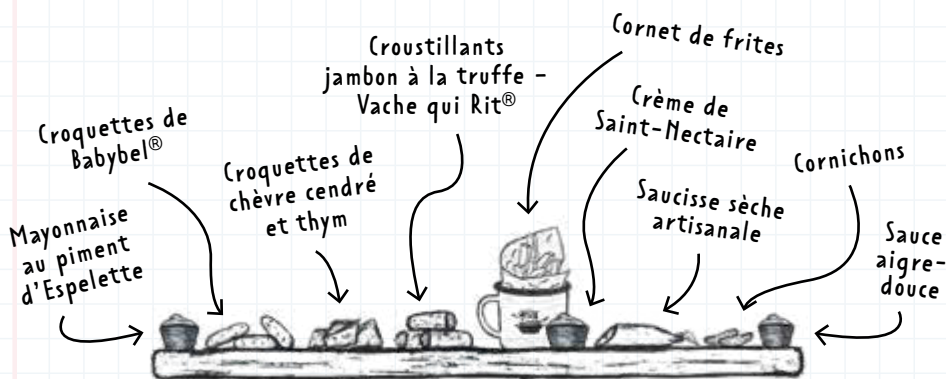 Mayonnaise
au piment
d'Espelette
Croquettes de
Babybel®
Croquettes de
chèvre cendré
et thym
Croustillants
jambon à la truffe -
Vache qui Rit®
Cornet de frites
Crème de
Saint-Nectaire
Saucisse sèche
artisanale
Cornichons
Sauce
aigre-
douce